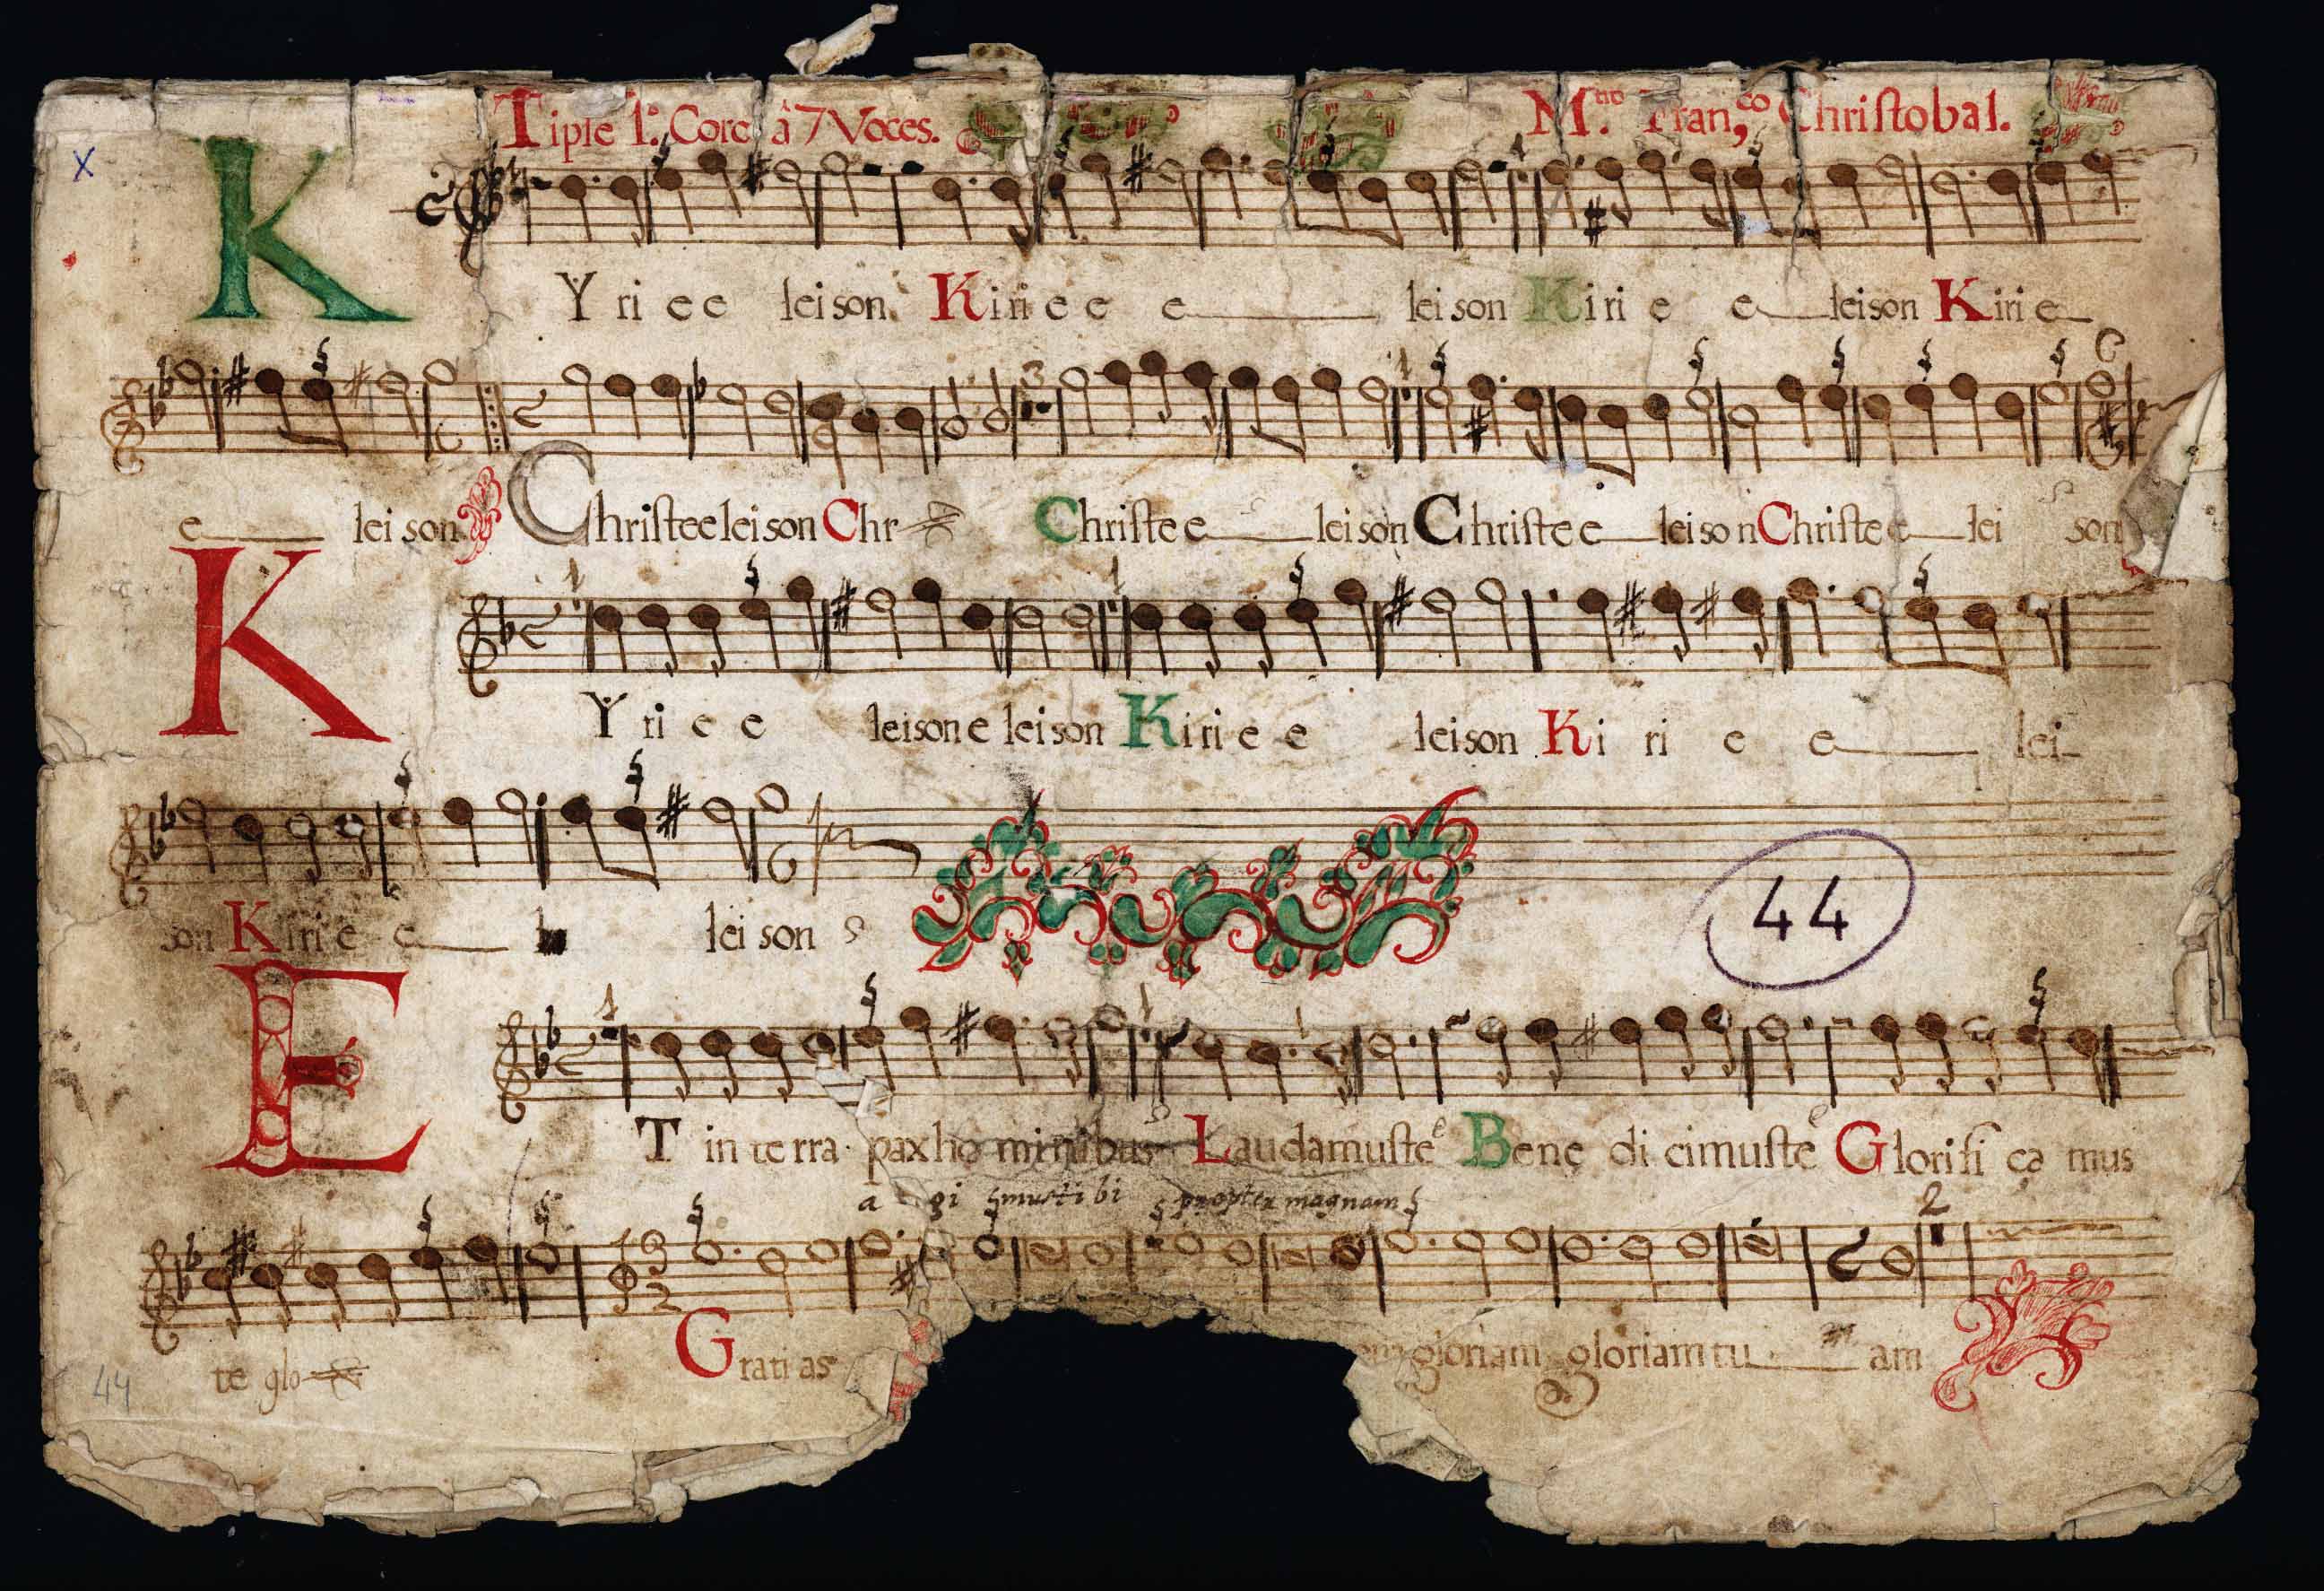 Tiple 1º. Coro â 7 Voces. Mtro. Franco, Christobal.
X
K Y ri e e leison. Kirie e e leison Kiri e e leison Kirie
e leison Christeeleison Chr Christe e leison Christe e leison Christe e lei son
K Y ri e e leison e leison Kiri e e leison Ki ri e e lei-
son Kirie e leison
44
E T in terra pax hominibus Laudamuste Bene dicimuste Glorifi ca mus
a gi mus tibi propter magnam
2
te glo Gratias gloriam gloriam tu am
44